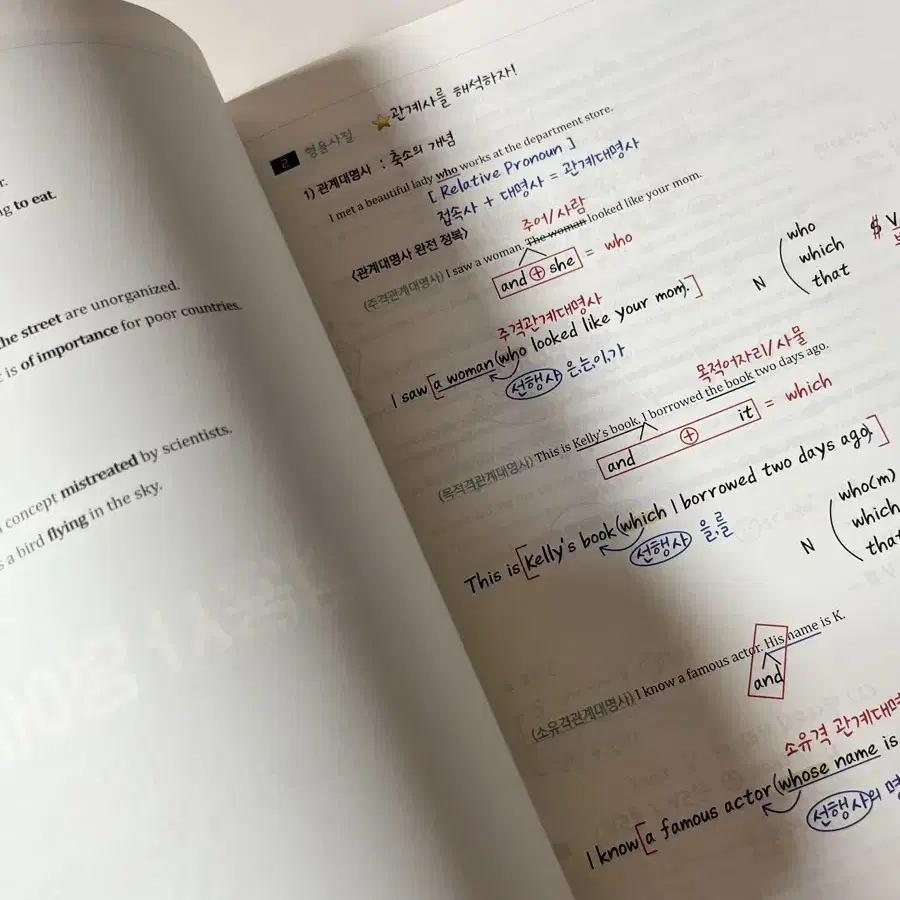 r.
ng to eat.
the street are unorganized.
is of importance for poor countries.
concept mistreated by scientists.
s a bird flying in the sky.
2 형용사절 ⭐관계사를 해석하자!
1) 관계대명사 : 축소의 개념
I met a beautiful lady who works at the department store.
[ Relative Pronoun ]
접속사 + 대명사 = 관계대명사
<관계대명사 완전 정복>
주어/사람
(주격관계대명사) I saw a woman. The woman looked like your mom.
and + she = who
N ( who
which
that
$ V
주격관계대명사
I saw [a woman (who looked like your mom).]
선행사 은,는,이,가
목적어자리/사물
(목적격관계대명사) This is Kelly's book. I borrowed the book two days ago.
and + it = which
This is [Kelly's book (which I borrowed two days ago).]
선행사 을,를
N ( who(m)
which
that
(소유격관계대명사) I know a famous actor. His name is K.
and
소유격 관계대명
I know [a famous actor (whose name is
선행사의 명